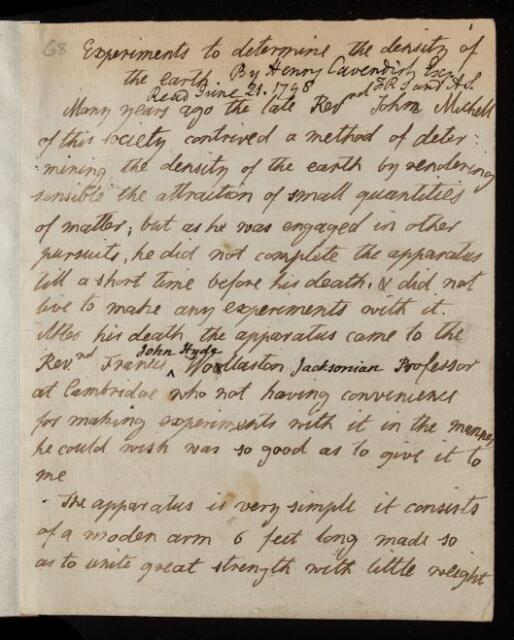 68 Experiments to determine the density of
the earth. By Henry Cavendish Esq.
Read June 21. 1798 F.R.S and A.S.
Many years ago the late Revnd John Michell
of this society contrived a method of deter-
mining the density of the earth by rendering
sensible the attraction of small quantities
of matter; but as he was engaged in other
pursuits, he did not complete the apparatus
till a short time before his death, & did not
live to make any experiments with it.
After his death the apparatus came to the
John Hyde
Rev.nd Francis ^ Wollaston Jacksonian Professor
at Cambridge who not having convenience
for making experiments with it in the manner
he could wish was so good as to give it to
me
The apparatus is very simple it consists
of a wooden arm 6 feet long made so
as to unite great strength with little weight